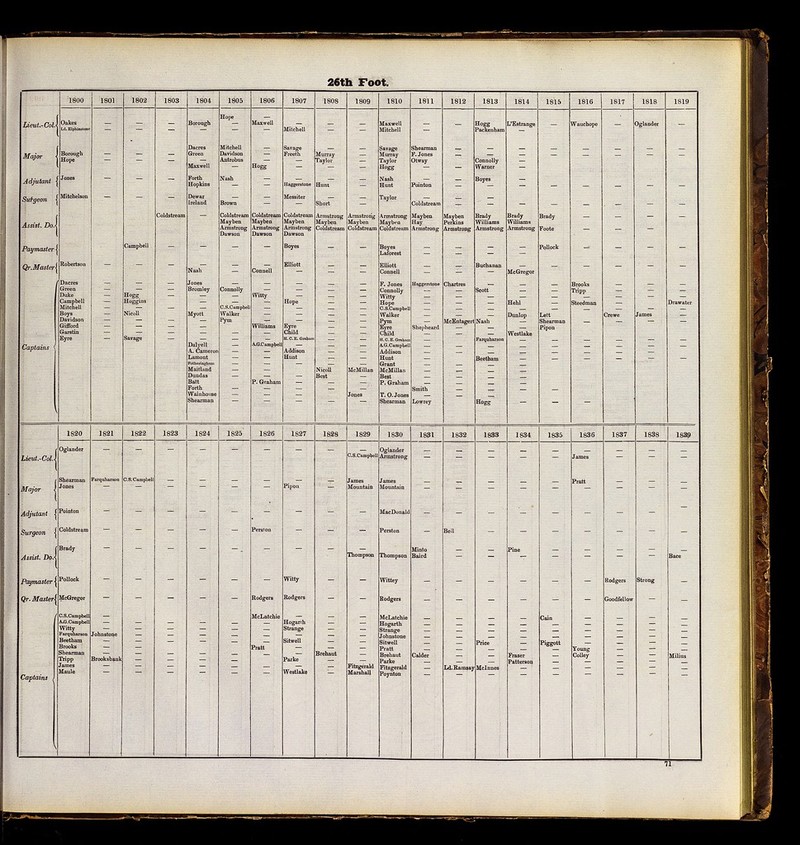 26th Foot.
1800 1801 1802 1803 1804 1805 1806 1807 1808 1809 1810 1811 1812 1813 1814 1815 1816 1817 1818 1819
Hope —
Lieut.-Col. Oakes — — — Borough — Maxwell — — — Maxwell — — Hogg L'Estrange — Wauchope — Oglander —
Ld. Elphinstone — — — — — — Mitchell — — Mitchell — — Packenham —
Dacres Mitchell — Savage — — Savage Shearman
Major Borough — — — Green Davidson — Freeth Murray — Murray F. Jones
Hope — — — — Antrobus — — Taylor — Taylor Otway — Connolly
Maxwell — Hogg — — — Hogg — — Warner —
Adjutant Jones — — — Forth Nash — — — — Nash — — Boyes
Hopkins — — Haggerstone Hunt — Hunt Pointon
Surgeon Mitchelson — — — Dewar — — Messiter — — Taylor —
Ireland Brown — — Short — — Coldstream
Assist. Do. Coldstream — Coldstream Coldstream Coldstream Armstrong Armstrong Armstrong Mayben Mayben Brady Brady Brady
Mayben Mayben Mayben Mayben Mayben Mayben Hay Perkins Williams Williams —
Armstrong Armstrong Armstrong Coldstream Coldstream Coldstream Armstrong Armstrong Armstrong Armstrong Foote
Dawson Dawson Dawson
Paymaster Campbell — — — — Boyes — — Boyes — — — — Pollock
Laforest
Qr. Master Robertson — — — — — — Elliott — — Elliott — — Buchanan
Nash — Connell — — — Connell — — — McGregor
Captains
Dacres — — — Jones — — — — — F. Jones Haggerstone Chartres — — — Brooks
Green — — — Bromley Connolly — — — — Connolly — — Scott — — Tripp
Duke — Hogg — — — Witty — — — Witty
Campbell — Hoggins — — — — Hope — — Hope — — — Hehl — Steedman — — Drawater
Mitchell — — — — C.S.Campbell — — — — C.S.Campbell
Boys — Nicoll — Myott Walker — — — — Walker — — — Dunlop Lett — Crowe James
Davidson — — — — Pym — — — — Pym — McEntagert Nash — Shearman
Gifford — — — — — Williams Eyre — — Eyre Shepheard — — — Pipon
Garstin — — — — — — Child — — Child — — — Westlake
Eyre — Savage — — — — H. C. E. Graham — — H. C. E. Graham — — Farquharson
Dalyell — A.G.Campbell — — — A.G.Campbell
A. Cameron — — Addison — — Addison
Lamont — — Hunt — — Hunt — — Beetham
Grant
Maitland — — — Nicoll McMillan McMillan
Dundas — — — Best — Best
Batt — P. Graham — — — P. Graham
Forth — — — — — — Smith
Wainhouse — — — — Jones T. O. Jones
Shearman — — — — — Shearman Lowrey — Hogg — — —
1820 1821 1822 1823 1824 1825 1826 1827 1828 1829 1830 1831 1832 1833 1834 1835 1836 1837 1838 1839
Lieut.-Col. Oglander — — — — — — — — — Oglander
C.S.Campbell Armstrong — — — — — James — — —
Major Shearman Farquharson C.S. Campbell — — — — — — James James — — — — — Pratt
Jones — — — — — — Pipon — Mountain Mountain
Adjutant Pointon — — — — — — — — — MacDonald
Surgeon Coldstream — — — — — Perston — — — Perston — Bell
Assist. Do. Brady — — — — — — — — — — Minto — — Pine
Thompson Thompson Baird — — — — — — — Bace
Paymaster Pollock — — — — — — Witty — — Wittey — — — — — — Rodgers Strong
Qr. Master McGregor — — — — — Rodgers Rodgers — — Rodgers — — — — — — Goodfellow — —
Captains
C.S.Campbell — — — — — McLatchie — — — McLatchie — — — — Cain
A.G.Campbell — — — — — — Hogarth — — Hogarth
Witty — — — — — — Strange — — Strange
Farquharson Johnstone — — — — — — — — Johnstone
Beetham — — — — — — Sitwell — — Sitwell — — Price — Piggott
Brooks — — — — — Pratt — — — Pratt — — — — — Young
Shearman — — — — — — — Brehaut — Brehaut Calder — — Fraser — Colley — — Milius
Tripp Brooksbank — — — — — Parke — — Parke — — — Patterson
James — — — — — — — — Fitzgerald Fitzgerald — Ld. Ramsay McInnes
Maule — — — — — — Westlake — Marshall Poynton
71